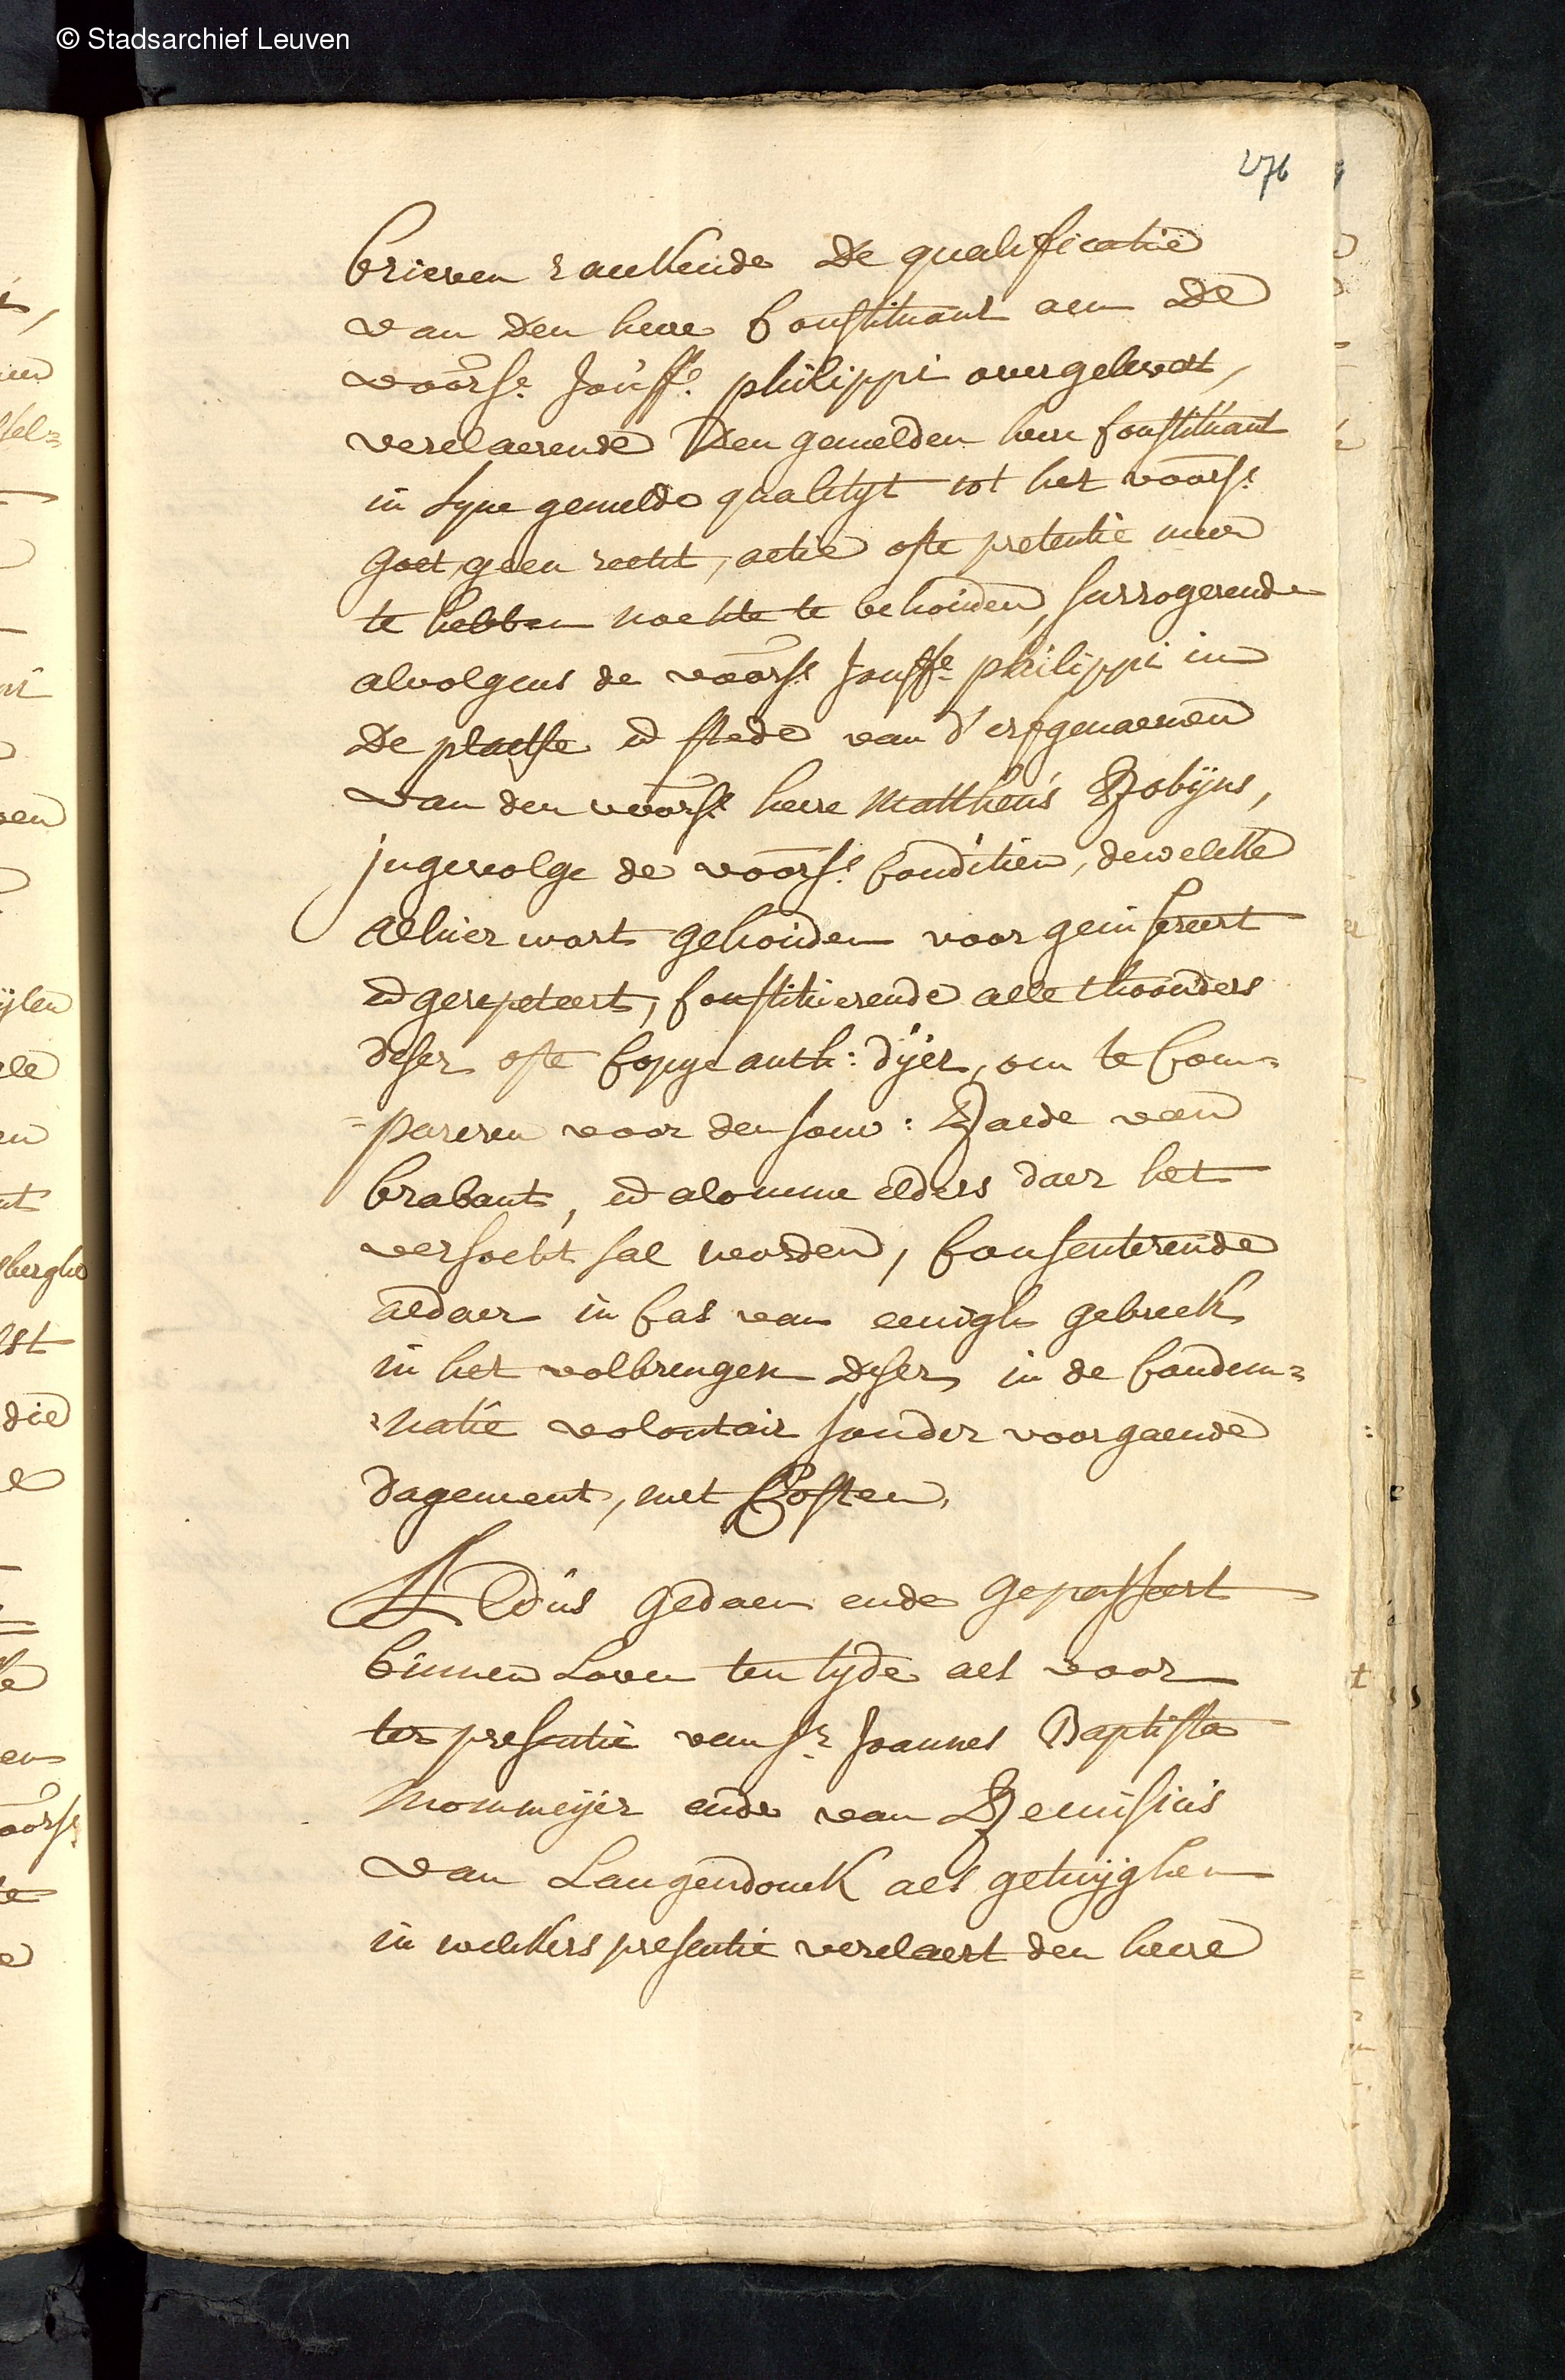 © Stadsarchief Leuven
276
brieven raekende de qualificatie
van den heere Constituant aen de
voors. Jouffe. philippi overgelevert,
verclaerende den gemelden heere Constituant
in syne gemelde qualityt tot het voors.
goet, geen recht, actie ofte pretentie meer
te hebben nochte te behouden, surrogerende
alvolgens de voors. Jouffe philippi in
de plaetse ed stede van d'erfgenaemen
van den voors. heere Mattheus Robyns,
ingevolge de voors. Conditien, dewelcke
alhier wort gehouden voor geinsereert
ed gerepeteert, Constituerende alle thoonders
deser ofte Copye auth: dyer, om te Com=
=pareren voor den souv: Raede van
brabant, ed alomme elders daer het
versocht sal worden, Consenterende
aldaer in Cas van eenigh gebreck
in het volbrengen deser in de Condem=
=natie volontair sonder voorgaende
dagement, met Costen.
Aldus gedaen ende gepasseert
binnen Loven ten tyde als voor
ter presentie van Sr Joannes Baptista
Mommeyer ende van Remisius
van Langendonck als getuyghen
in welckers presentie verclaert den heere